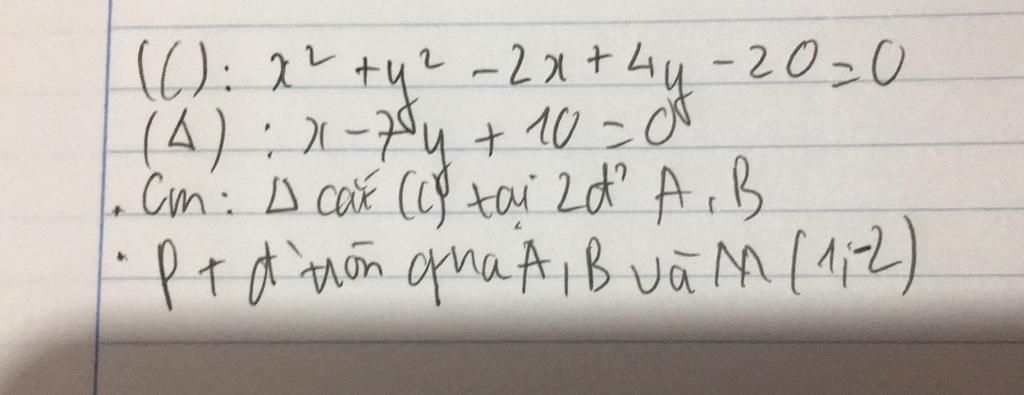 (C): x² + y² - 2x + 4y - 20 = 0
(Δ) : x - 7y + 10 = 0
. Cm: Δ cắt (C) tại 2 đ² A, B
. P t đ' tròn qua A, B và M (1;-2)